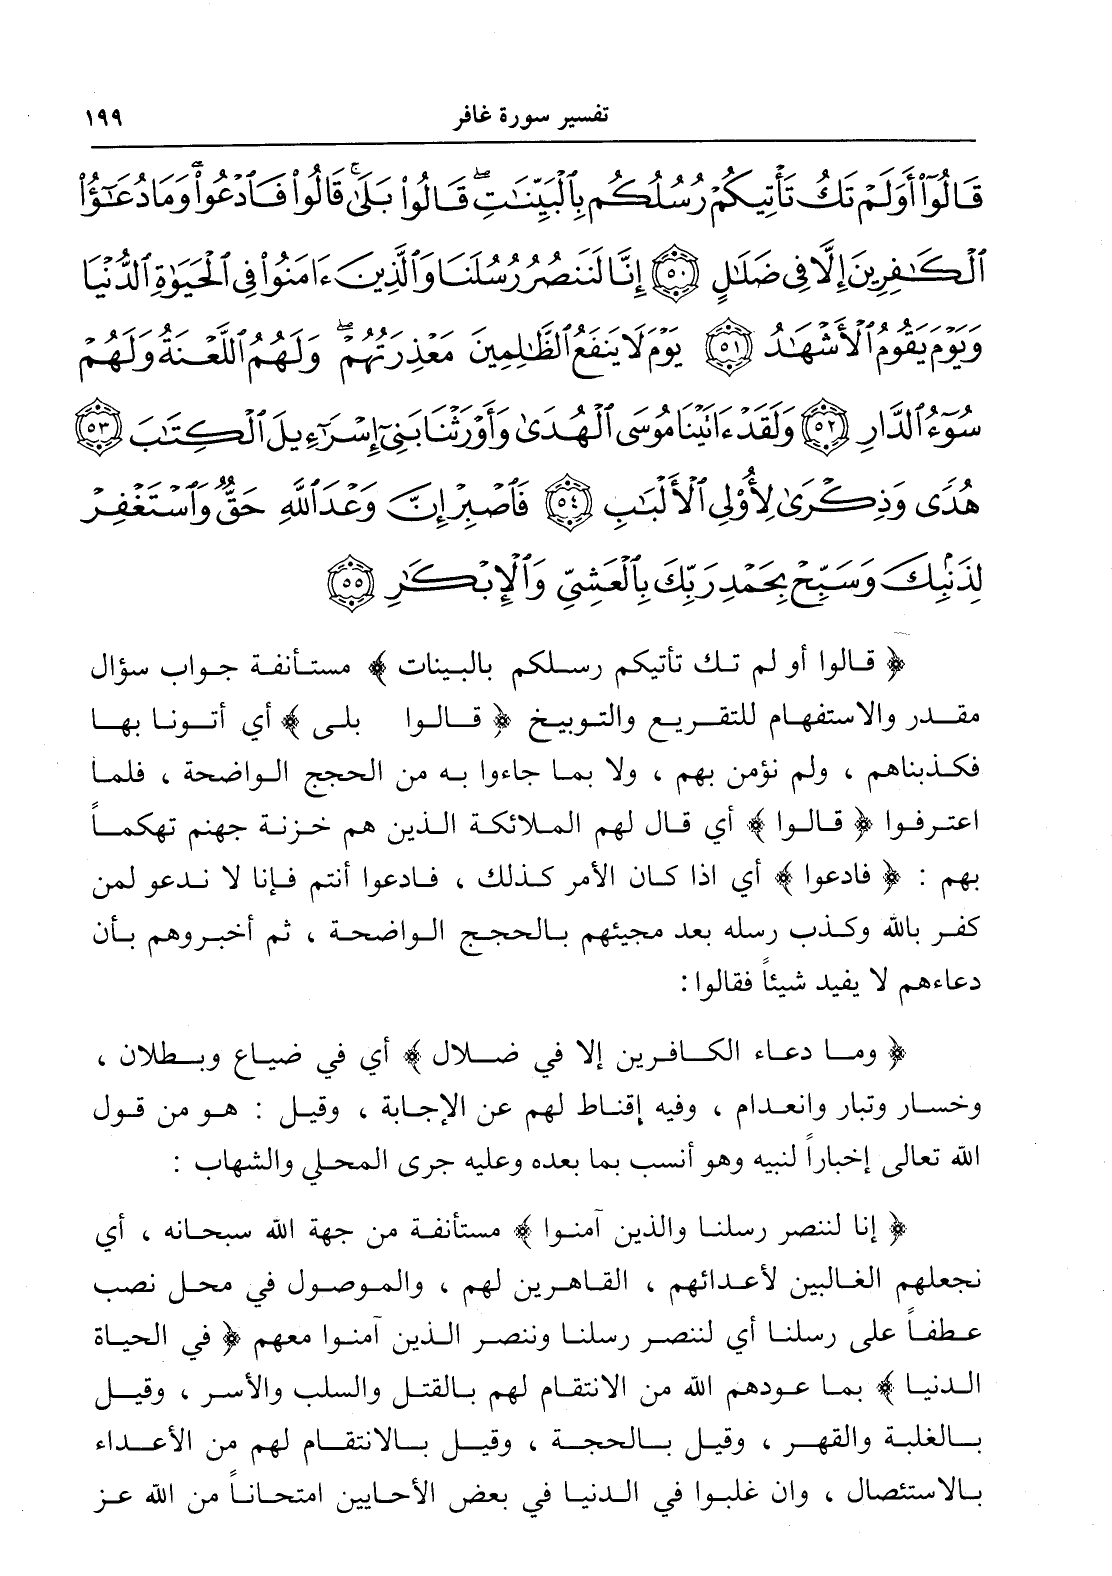 تفسير سورة غافر ١٩٩
قَالُوٓاْ أَوَلَمْ تَكُ تَأْتِيكُمْ رُسُلُكُم بِٱلْبَيِّنَٰتِ ۖ قَالُواْ بَلَىٰ ۚ قَالُواْ فَٱدْعُواْ ۗ وَمَا دُعَٰٓؤُاْ
ٱلْكَٰفِرِينَ إِلَّا فِى ضَلَٰلٍ ٥٠ إِنَّا لَنَنصُرُ رُسُلَنَا وَٱلَّذِينَ ءَامَنُواْ فِى ٱلْحَيَوٰةِ ٱلدُّنْيَا
وَيَوْمَ يَقُومُ ٱلْأَشْهَٰدُ ٥١ يَوْمَ لَا يَنفَعُ ٱلظَّٰلِمِينَ مَعْذِرَتُهُمْ ۖ وَلَهُمُ ٱللَّعْنَةُ وَلَهُمْ
سُوٓءُ ٱلدَّارِ ٥٢ وَلَقَدْ ءَاتَيْنَا مُوسَى ٱلْهُدَىٰ وَأَوْرَثْنَا بَنِىٓ إِسْرَٰٓءِيلَ ٱلْكِتَٰبَ ٥٣
هُدًى وَذِكْرَىٰ لِأُوْلِى ٱلْأَلْبَٰبِ ٥٤ فَٱصْبِرْ إِنَّ وَعْدَ ٱللَّهِ حَقٌّ وَٱسْتَغْفِرْ
لِذَنۢبِكَ وَسَبِّحْ بِحَمْدِ رَبِّكَ بِٱلْعَشِىِّ وَٱلْإِبْكَٰرِ ٥٥
﴿ قالوا أو لم تك تأتيكم رسلكم بالبينات ﴾ مستأنفة جواب سؤال
مقدر والاستفهام للتقريع والتوبيخ ﴿ قالوا بلى ﴾ أي أتونا بها
فكذبناهم ، ولم نؤمن بهم ، ولا بما جاءوا به من الحجج الواضحة ، فلما
اعترفوا ﴿ قالوا ﴾ أي قال لهم الملائكة الذين هم خزنة جهنم تهكماً
بهم : ﴿ فادعوا ﴾ أي اذا كان الأمر كذلك ، فادعوا أنتم فإنا لا ندعو لمن
كفر بالله وكذب رسله بعد مجيئهم بالحجج الواضحة ، ثم أخبروهم بأن
دعاءهم لا يفيد شيئاً فقالوا :
﴿ وما دعاء الكافرين إلا في ضلال ﴾ أي في ضياع وبطلان ،
وخسار وتبار وانعدام ، وفيه إقناط لهم عن الإجابة ، وقيل : هو من قول
الله تعالى إخباراً لنبيه وهو أنسب بما بعده وعليه جرى المحلي والشهاب :
﴿ إنا لننصر رسلنا والذين آمنوا ﴾ مستأنفة من جهة الله سبحانه ، أي
نجعلهم الغالبين لأعدائهم ، القاهرين لهم ، والموصول في محل نصب
عطفاً على رسلنا أي لننصر رسلنا وننصر الذين آمنوا معهم ﴿ في الحياة
الدنيا ﴾ بما عودهم الله من الانتقام لهم بالقتل والسلب والأسر ، وقيل
بالغلبة والقهر ، وقيل بالحجة ، وقيل بالانتقام لهم من الأعداء
بالاستئصال ، وان غلبوا في الدنيا في بعض الأحايين امتحاناً من الله عز